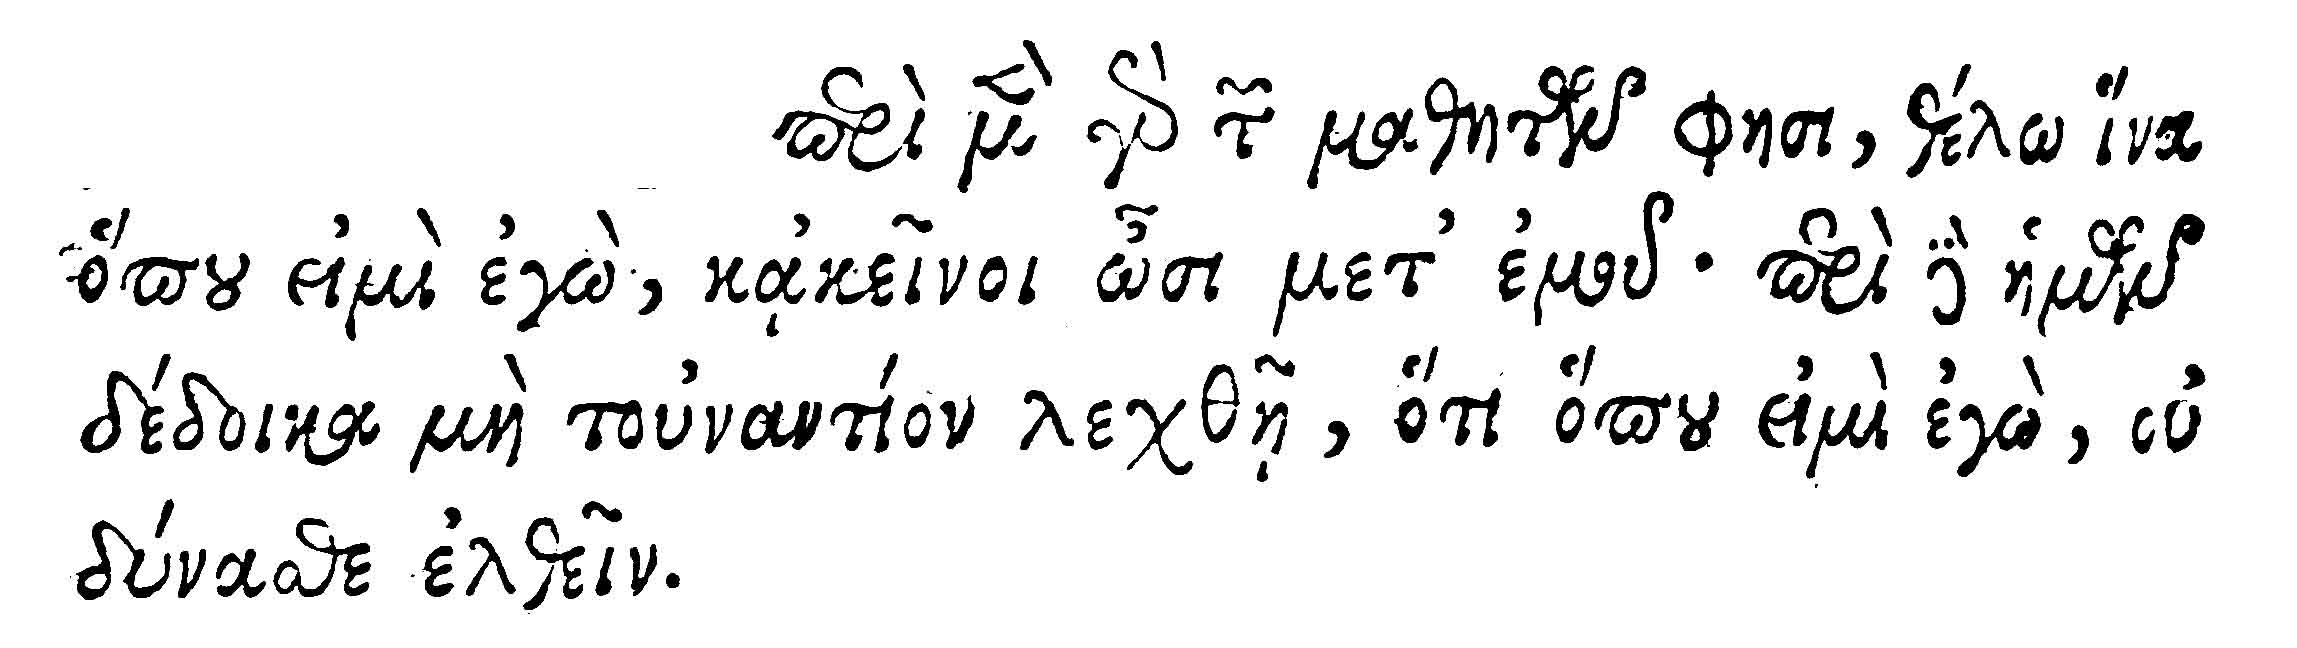 περὶ μὲν γὰρ τῶν μαθητῶν φησι, θέλω ἵνα
ὅπου εἰμὶ ἐγὼ, κᾀκεῖνοι ὦσι μετ᾽ ἐμοῦ· περὶ δὲ ἡμῶν
δέδοικα μὴ τοὐναντίον λεχθῇ, ὅτι ὅπου εἰμὶ ἐγὼ, οὐ
δύνασθε ἐλθεῖν.